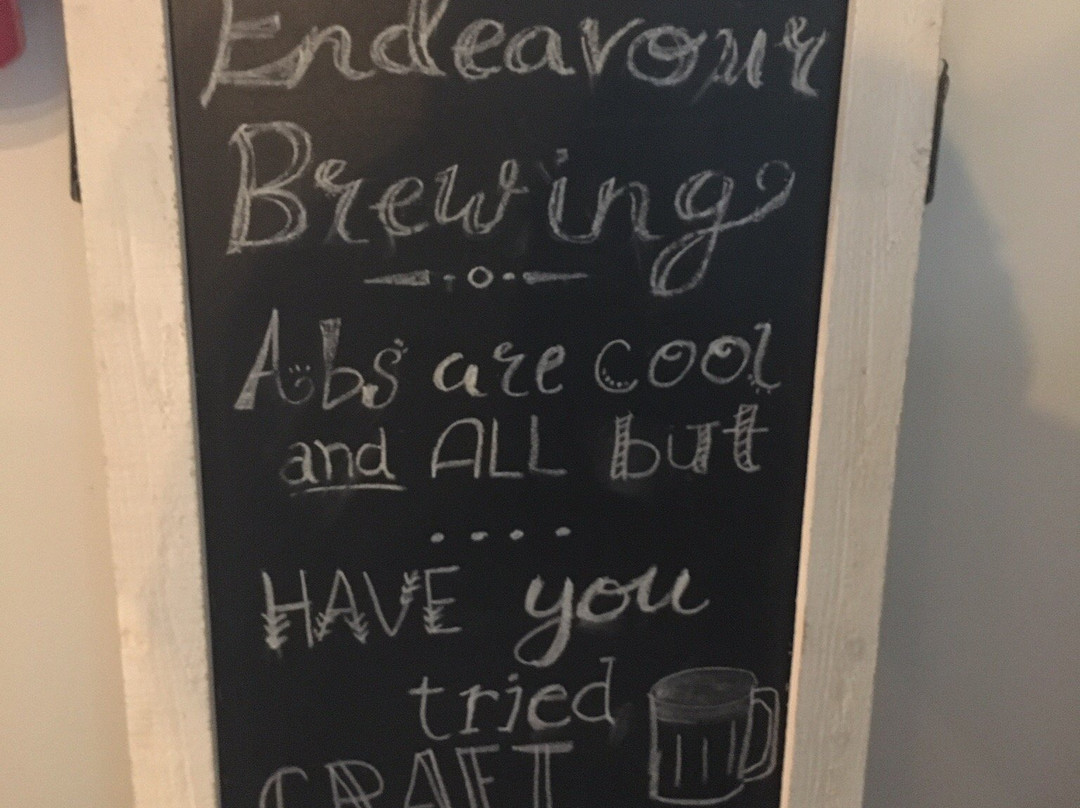 Endeavour
Brewing
Abs are cool
and ALL but
....
HAVE you
tried
CRAFT